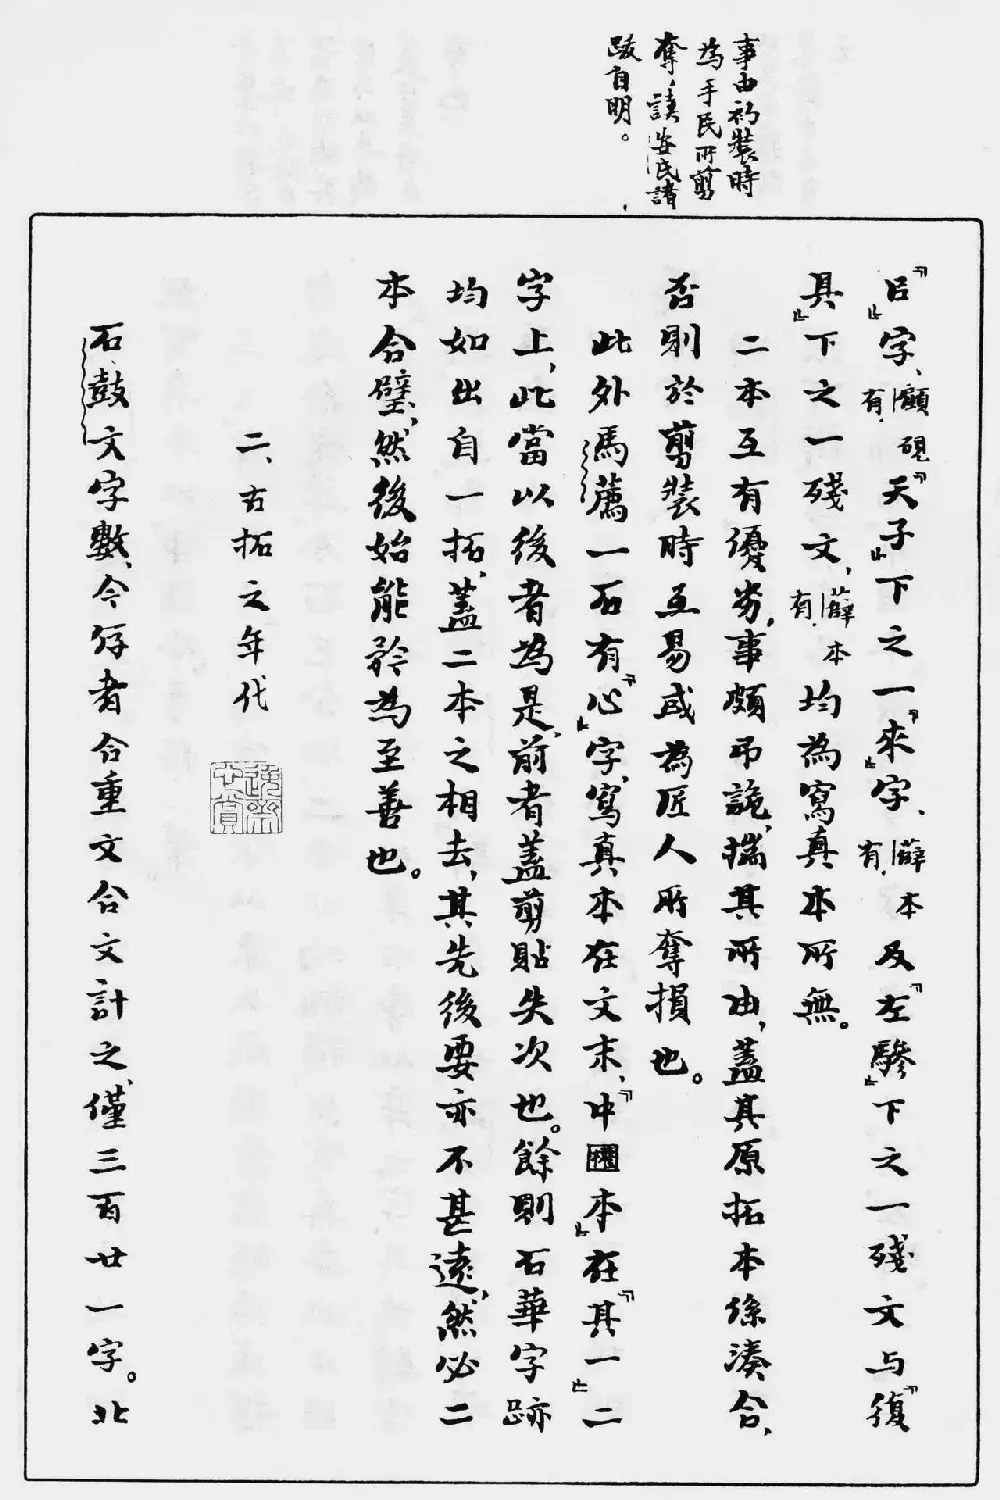 事由初裝時
為手民所剪
奪，讀安氏諸
跋自明。
『㠯』字、顧硯有。『天子』下之一『來』字、薛本有。及『左驂』下之一殘文与『復
具』下之一殘文，薛本有。均為寫真本所無。
二本互有優劣，事頗弔詭，揣其所由，蓋其原拓本係湊合，
否則於剪裝時互易或為匠人所奪損也。
此外馬薦一石有『心』字，寫真本在文末，『中國本』在『其一』二
字上，此當以後者為是，前者蓋剪貼失次也。餘則石華字跡
均如出自一拓，蓋二本之相去，其先後要亦不甚遠，然必二
本合璧，然後始能矜為至善也。
二、古拓之年代
石鼓文字數，今存者合重文合文計之，僅三百廿一字。北